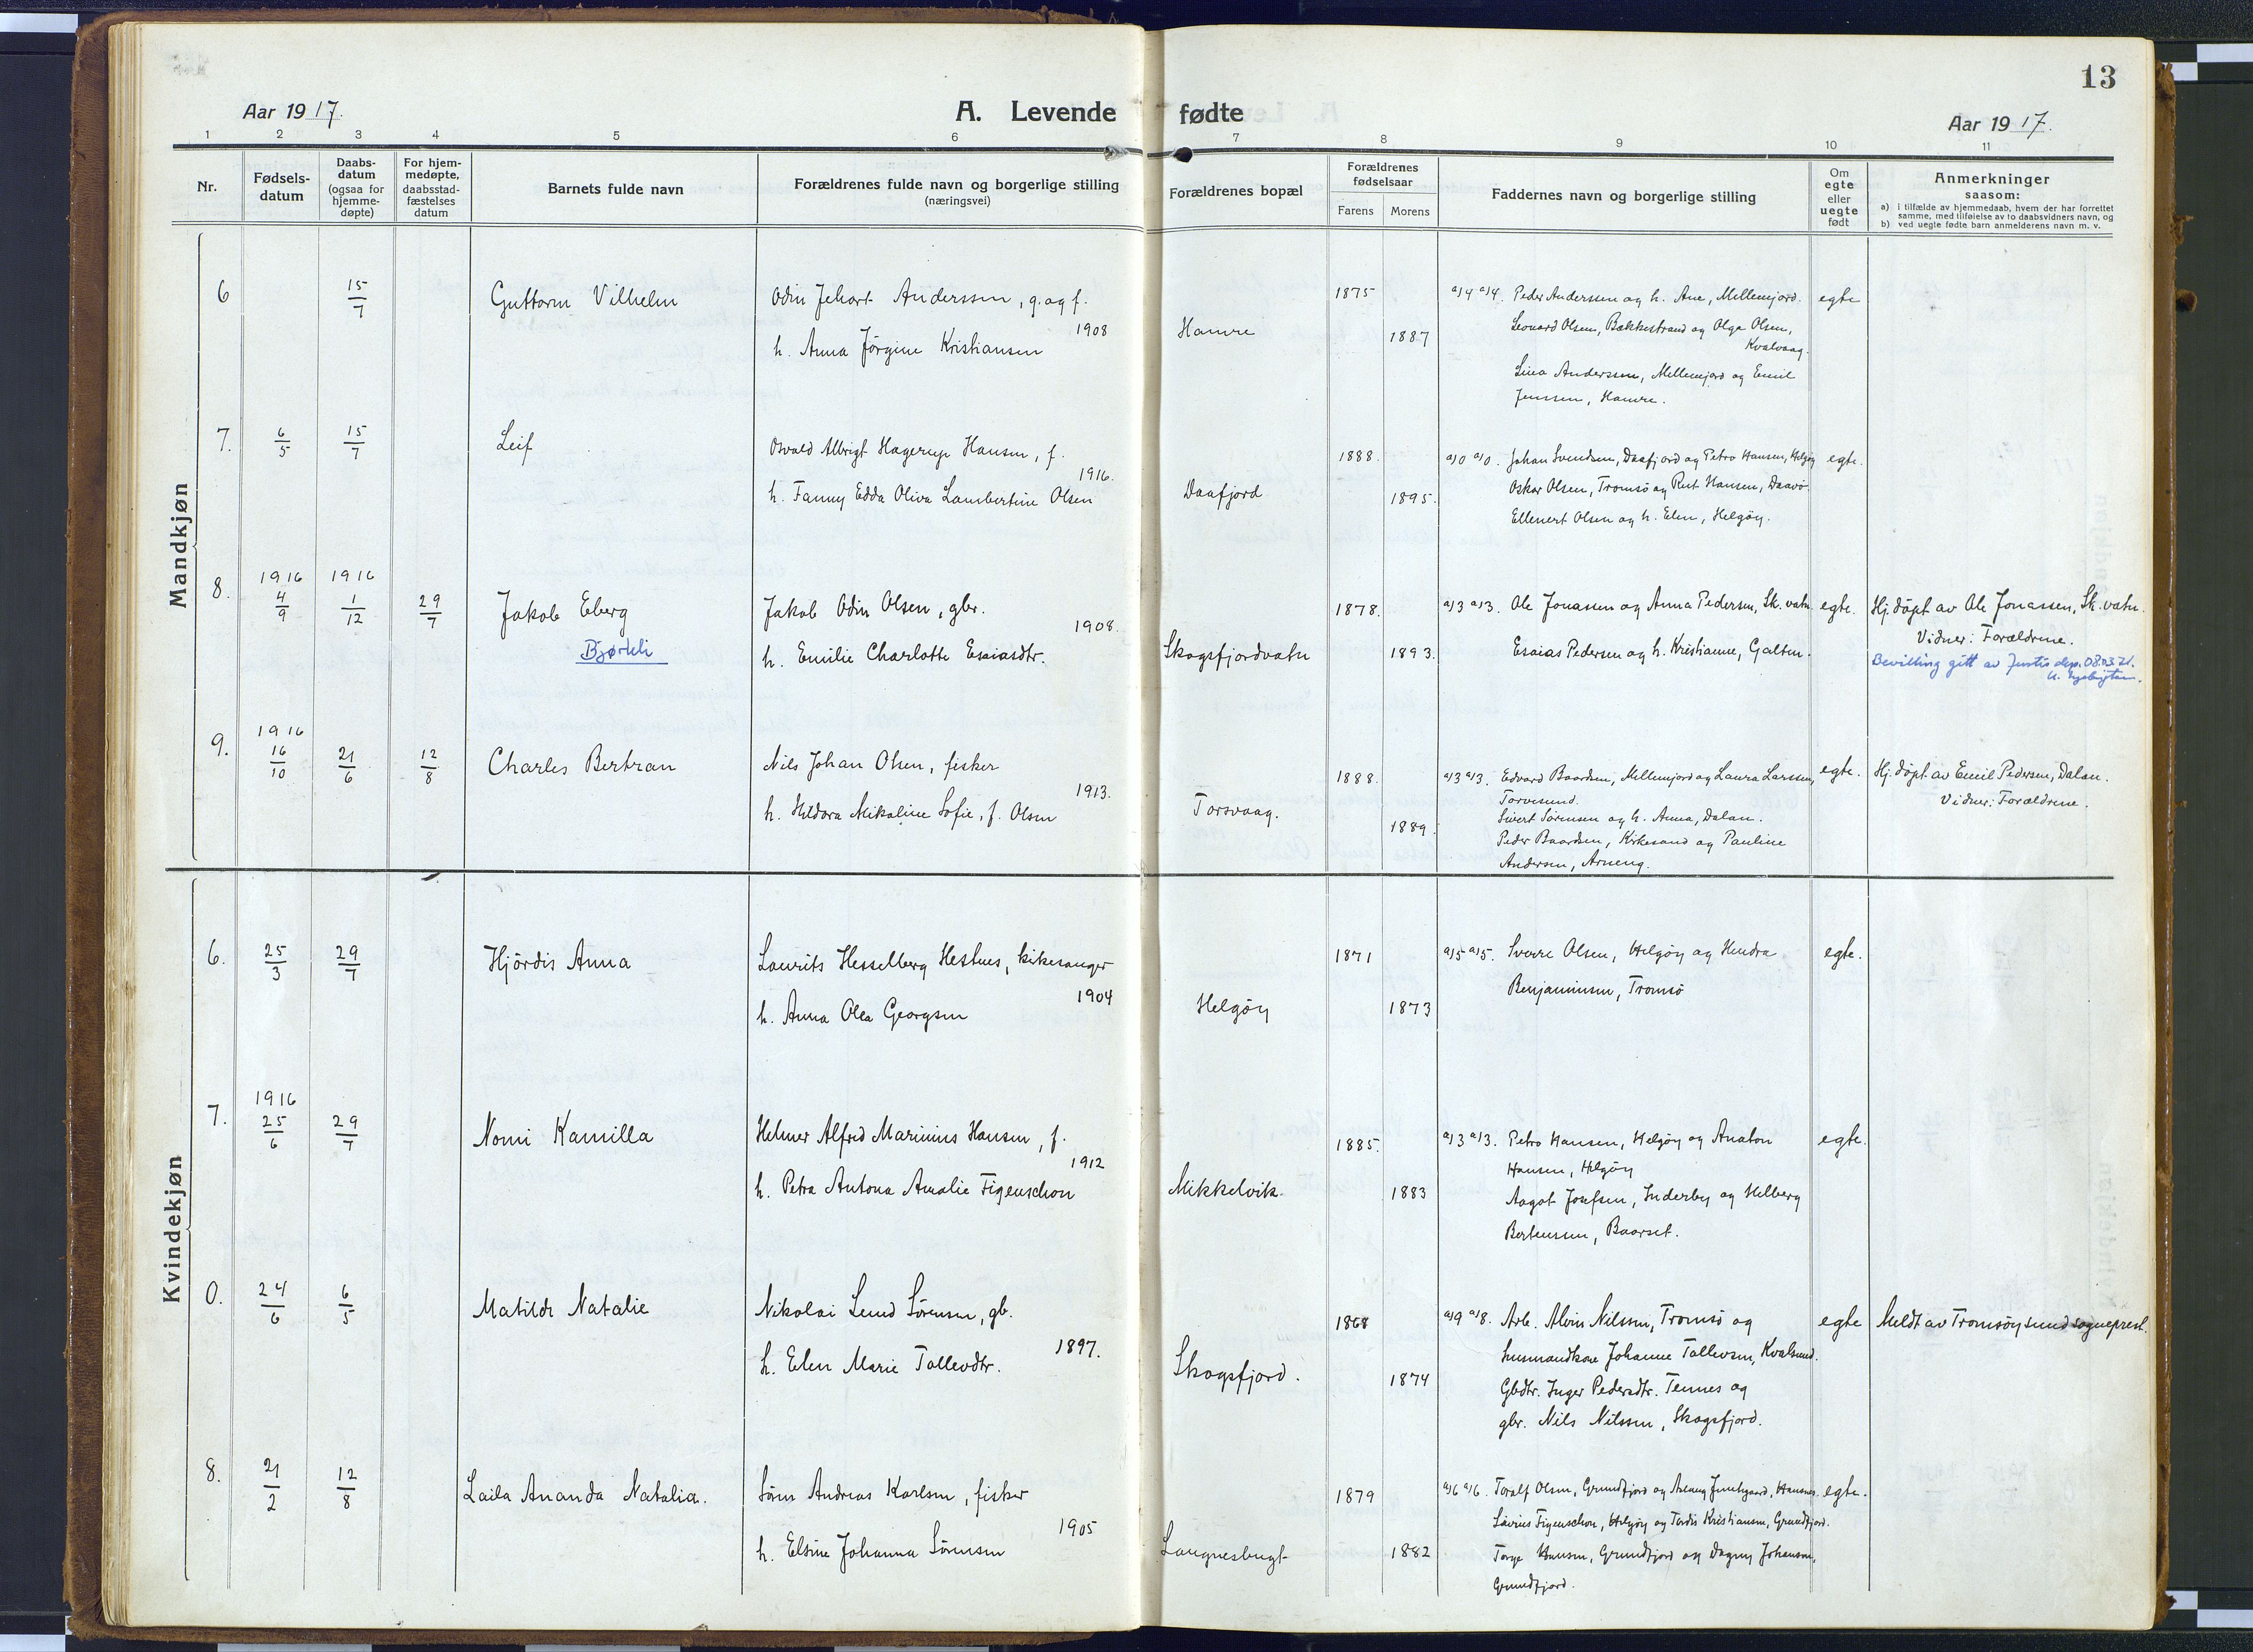 13
Aar 1917.
A. Levende fødte
Aar 1917.
1 2 3 4 5 6 7 8 9 10 11
Nr.
Fødsels-
datum
Daabs-
datum
(ogsaa for
hjemme-
døpte)
For hjem-
medøpte,
daabsstad-
fæstelses
datum
Barnets fulde navn
Forældrenes fulde navn og borgerlige stilling
(næringsvei)
Forældrenes bopæl
Forældrenes
fødselsaar
Farens Morens
Faddernes navn og borgerlige stilling
Om
egte
eller
uegte
født
Anmerkninger
saasom:
a) i tilfælde av hjemmedaab, hvem der har forrettet
samme, med tilføielse av to daabsvidners navn, og
b) ved uegte fødte barn anmelderens navn m. v.
Mandkjøn
6 15/7 Guttorm Vilhelm
Odin Jehart Anderssen, g. og f.
1908
h. Anna Jörgine Kristiansen
Hamre
1875
1887
a/4 a/4. Peder Anderssen og h. Ane, Mellemjord.
Leonard Olsen, Bakkestrand og Olga Olsen,
Kvalvaag.
Lina Anderssen, Mellemjord og Emil
Jenssen, Hamre.
egte
7. 6/5 15/7 Leif
Osvald Albrigt Hagerup Hansen, f.
1916.
h. Fanny Edda Oliva Lambertine Olsen
Daafjord
1888.
1895.
a/0 a/0. Johan Svendsen, Daafjord og Petra Hansen, Helgøy
Oskar Olsen, Tromsö og Rut Hansen, Daavö.
Ellenert Olsen og h. Elen, Helgöy.
egte.
8. 1916 4/9 1916 1/12 29/7 Jakob Eberg
Bjørkli
Jakob Odin Olsen, gbr.
1908.
h. Emilie Charlotte Esaiasdtr.
Skogsfjordvatn
1878.
1893.
a/3 a/3. Ole Jonassen og Anna Pedersen, Sk.vatn.
Esaias Pedersen og h. Kristianne, Galten.
egte.
Hj. döpt av Ole Jonassen, Sk.vatn.
Vidner: Forældrene.
Bevilling gitt av Justis dep. 08.03.21.
9. 1916 16/10 21/6 12/8 Charles Bertran
Nils Johan Olsen, fisker
1913.
h. Hildora Mikaline Sofie, f. Olsen
Torsvaag.
1888.
1889.
a/3 a/3. Edvard Baardsen, Mellemjord og Laura Larssen,
Torvesund.
Sivert Sörensen og h. Anna, Dalan.
Peder Baardsen, Kirkesand og Pauline
Andersen, Arneng.
egte.
Hj. döpt av Emil Pedersen, Dalan.
Vidner: Forældrene.
Kvindekjøn
6. 25/3 29/7 Hjördis Anna
Laurits Hesselberg Hestnes, kirkesanger
1904
h. Anna Olea Georgsen
Helgöy
1871
1873
a/5 a/5. Sverre Olsen, Helgöy og Hendra
Benjaminsen, Tromsö
egte.
7. 1916 25/6 29/7 Nomi Kamilla
Helmer Alfred Marinius Hansen, f.
1912
h. Petra Antona Amalie Figenschou
Mikkelvik.
1885.
1883
a/3 a/3. Petra Hansen, Helgöy og Anaton
Hansen, Helgöy
Aagot Josefsen, Inderby og Helberg
Bertensen, Baarset.
egte.
0. 24/6 6/5 Matilde Natalie
Nikolai Lund Sörensen, gb.
1897.
h. Elen Marie Tollevdtr.
Skogsfjord.
1868
1874
a/9 a/8. Arb. Alvin Nilssen, Tromsö og
husmandkone Johanne Tollevsen, Kvalsund.
Gbdtr. Inger Pedersdtr. Tennes og
gbr. Nils Nilssen, Skogsfjord.
egte
Meldt av Tromsöysund sogneprest.
8. 21/2 12/8 Laila Ananda Natalia.
Sören Andreas Karlsen, fisker
1905
h. Elsine Johanna Sörensen
Langnesbugt
1879
1882
a/6 a/6. Toralf Olsen, Grundfjord og Aslaug Junhgaard, Hansnes.
Lavrius Figenschou, Helgöy og Tordis Kristiansen, Grundfjord.
Torge Hansen, Grundfjord og Dagny Johansen,
Grundfjord.
egte.